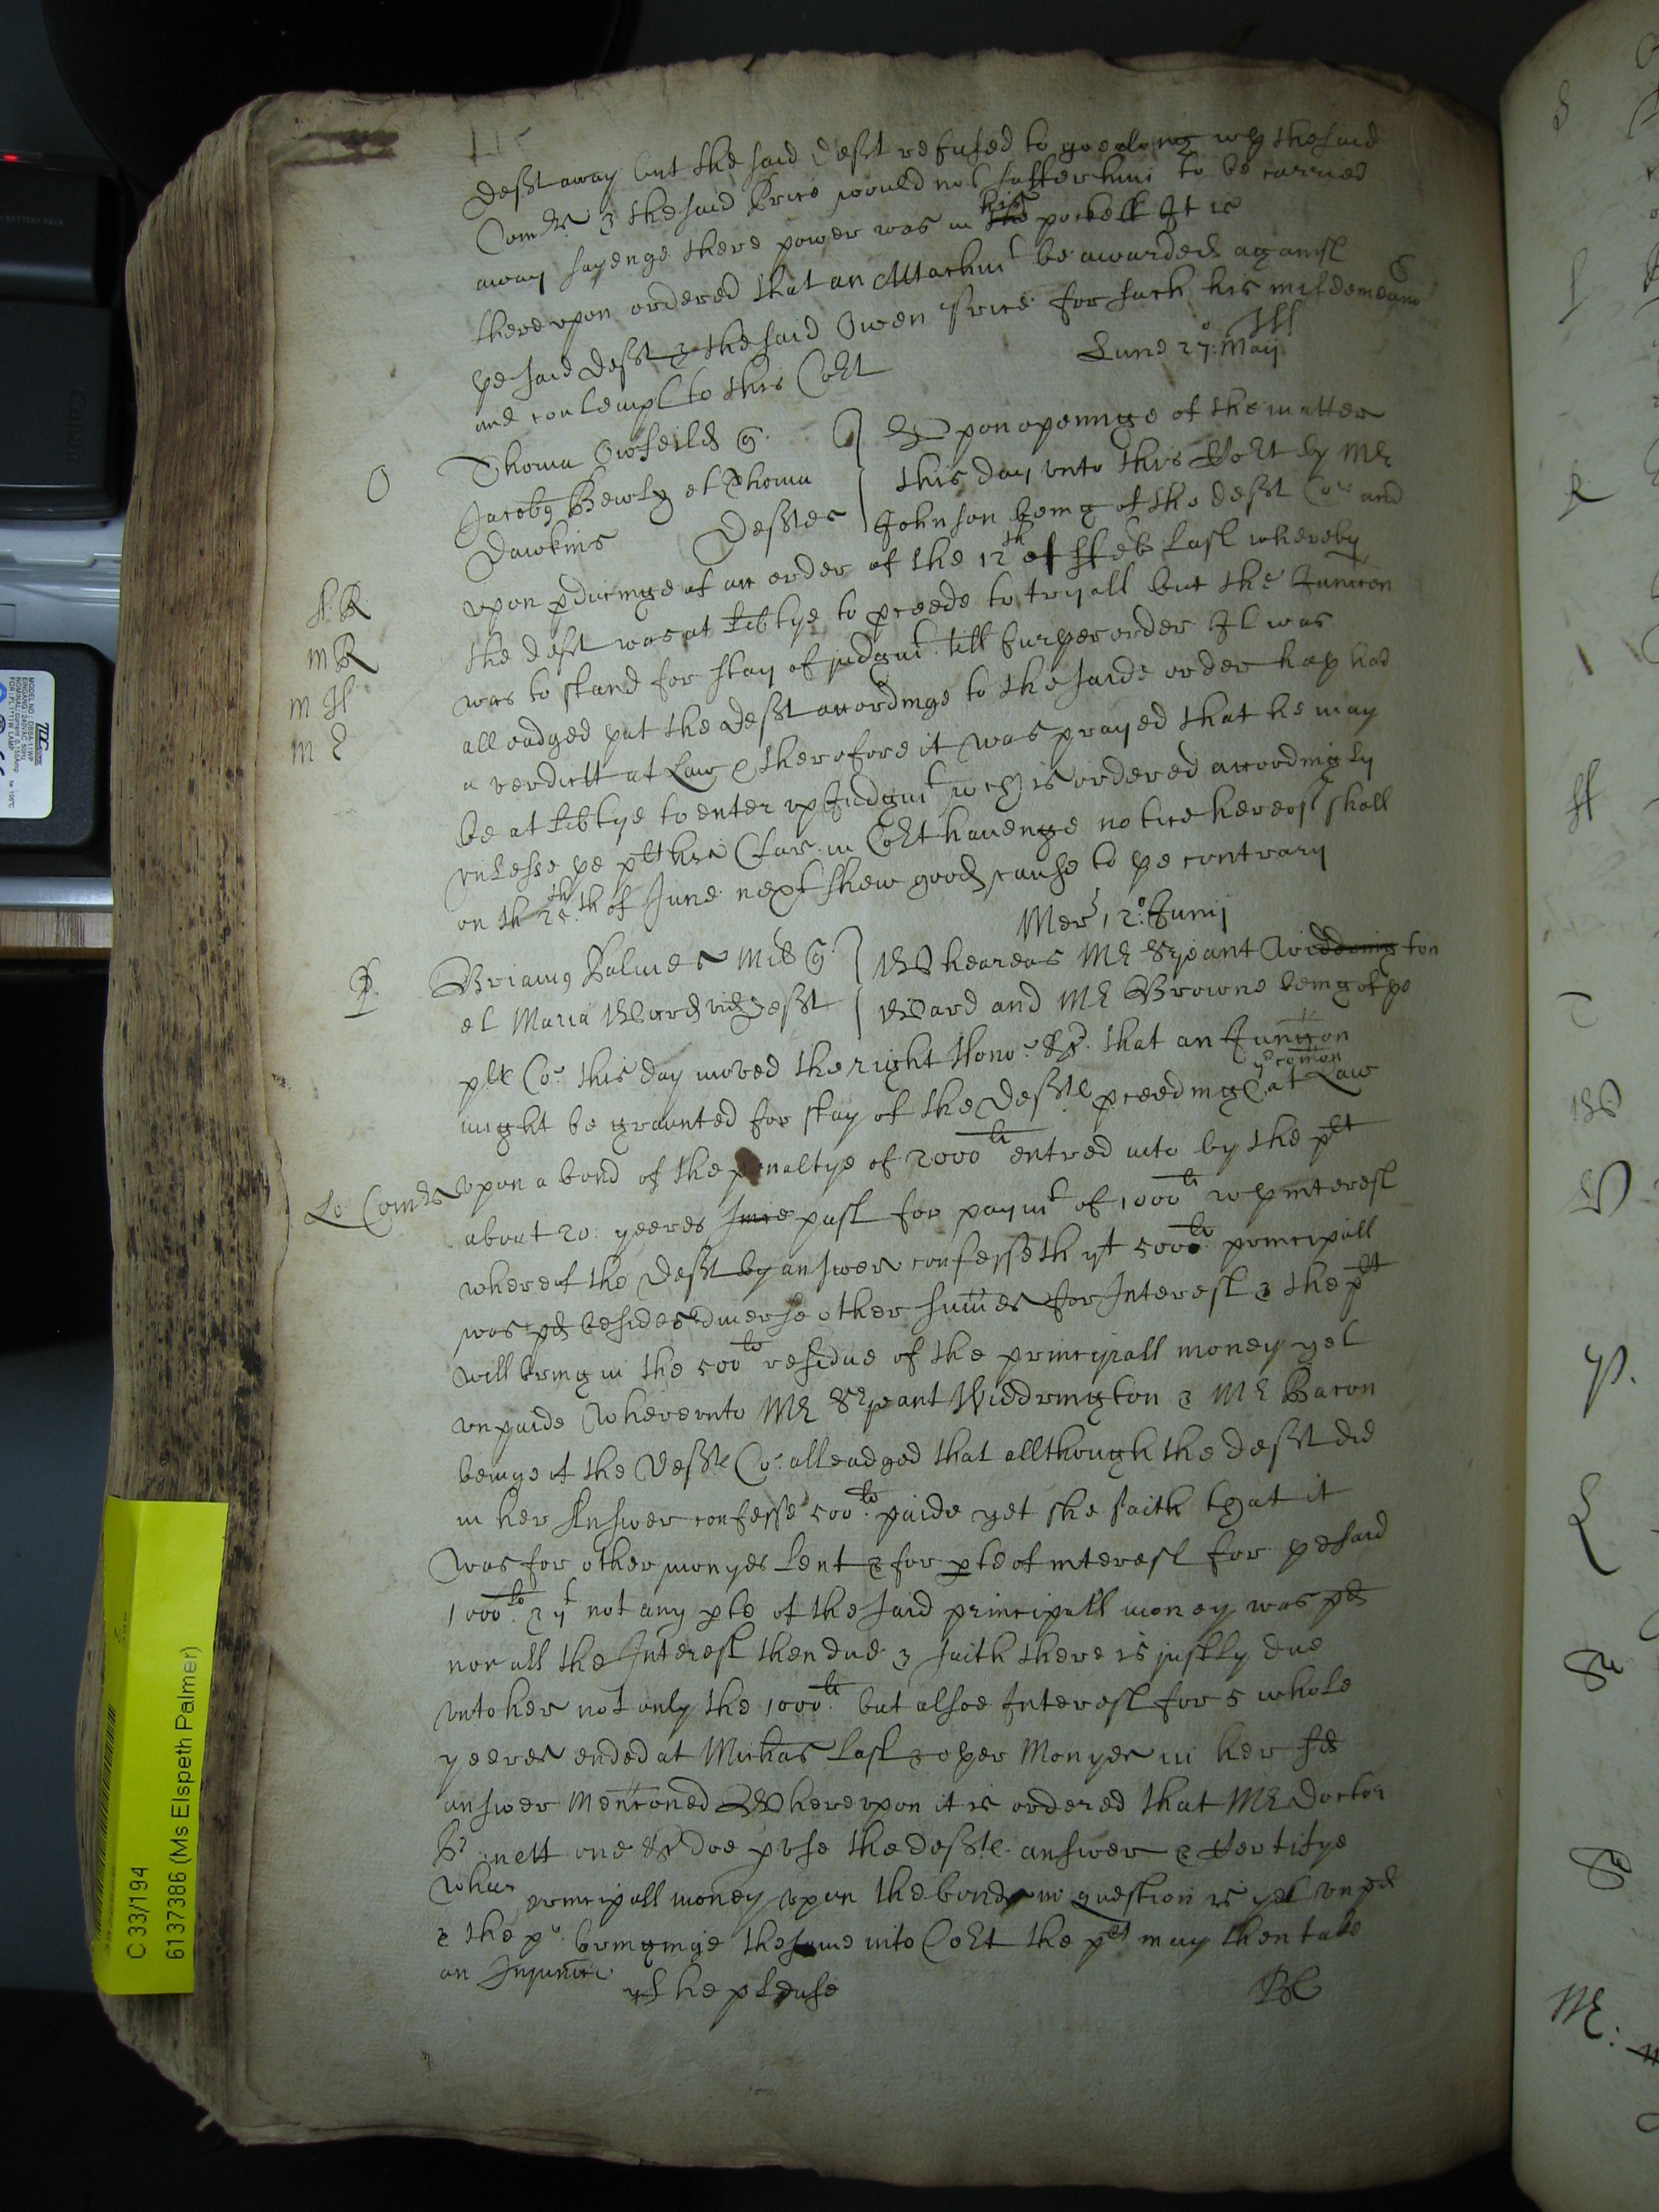 Deft away but the said Deft refused to goe along wth the said
Comrs & the said Price would not suffer him to be carried
away sayenge there power was in his pockett It is
therevpon ordered that an Attachmt be awarded against
ye said Deft & the said Owen Price for such his misdemeanor
and contempt to this Cort
Lune 27o: Maij
O Thoma Owfeild Q
Jacobus Bewly et Thoma
Dawkins Deftes
Vpon openinge of the matter
this day vnto this Cort by Mr
Johnson being of the Deft Co: and
vpon pducinge of an order of the 12th of ffeb last whereby
the deft was at libtye to pceede to tryall but the Junccon
was to stand for stay of judgmt till further order It was
alleadged yat the Deft accordinge to the saide order hath had
a verdictt at Law & therefore it was prayed that he may
be at libtye to enter vp Judgmt wch is ordered accordingly
vnlesse ye plt his Clar: in Cort havenge notice hereof shall
on th of June next shew good cause to ye contrary
S: R
m R
m H
m E
Mer: 12o: Junij
P Brianus Palmes Mil Q
et Maria Ward vid Deft
Wheareas Mr Srjeant Widdrington
Ward and Mr Browne being of ye
plt Co: this day moved the right Honor: &c. that an Junccon
might be graunted for stay of the Defts pceedings at ye comon Law
Lo: Comrs vpon a bond of the penaltye of 2000li entred into by the plt
about 20: yeeres since past for paymt of 1000li wth interest
whereof the Deft by answer confesseth yt 500li: principall
was pd besides diverse other sumes for Interest & the plt
will bring in the 500li residue of the principall money yet
vnpaide Wherevnto Mr Srjeant Widdrington & Mr Bacon
beinge of the Defts Co: alleadged that allthough the Deft did
in her Answer confesse 500li: paide yet she saith that it
was for other monyes lent & for pte of interest for ye said
1000li: & yt not any pte of the said principall money was pd
nor all the Interest then due & saith there is justly due
vnto her not only the 1000li: but alsoe Interest for 5 whole
yeeres ended at Michas last & other Monyes in her sd
answer mencioned Wherevpon it is ordered that Mr Doctor
one &c doe pvse the Defts: answer & certifye
what principall money vpon the bond in question is yet vnpd
& the plt bringinge the same into Cort the plt may then take
an Injunccon if he please
C 33/194
6137386 (Ms Elspeth Palmer)